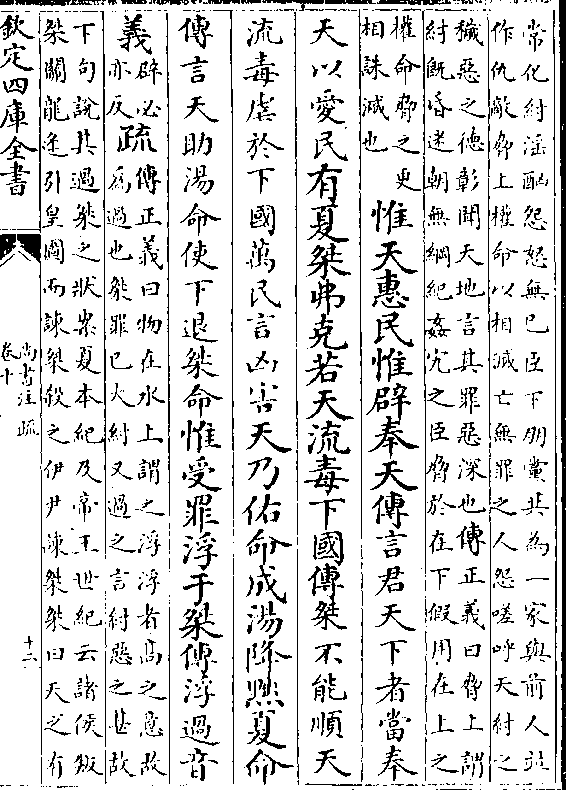 常化紂淫酗怨怒無已臣下朋黨共為一家與前人並
作仇敵脅上權命以相滅亡無罪之人怨嗟呼天紂之
穢惡之德彰聞天地言其罪惡深也傳正義曰脅上謂
紂既昏迷朝無綱紀姦宄之臣脅於在下假用在上之
權命脅之更
相誅滅也
惟天惠民惟辟奉天傳言君天下者當奉
天以愛民有夏桀弗克若天流毒下國傳桀不能順天
流毒虐於下國萬民言凶害天乃佑命成湯降黜夏命
傳言天助湯命使下退桀命惟受罪浮于桀傳浮過音
義
辟必
亦反
疏
傳正義曰物在水上謂之浮浮者高之意故
為過也桀罪已大紂又過之言紂惡之甚故
下句說其過桀之狀案夏本紀及帝王世紀云諸侯叛
桀關龍逄引皇圖而諫桀殺之伊尹諫桀桀曰天之有
欽定四庫全書
尚書注疏
卷十
十二